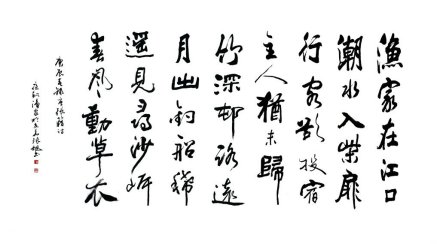 漁家在江口
潮水入柴扉
行客欲投宿
主人猶未歸
竹深邨路遠
月出釣船稀
遥見尋沙岸
春風動草衣